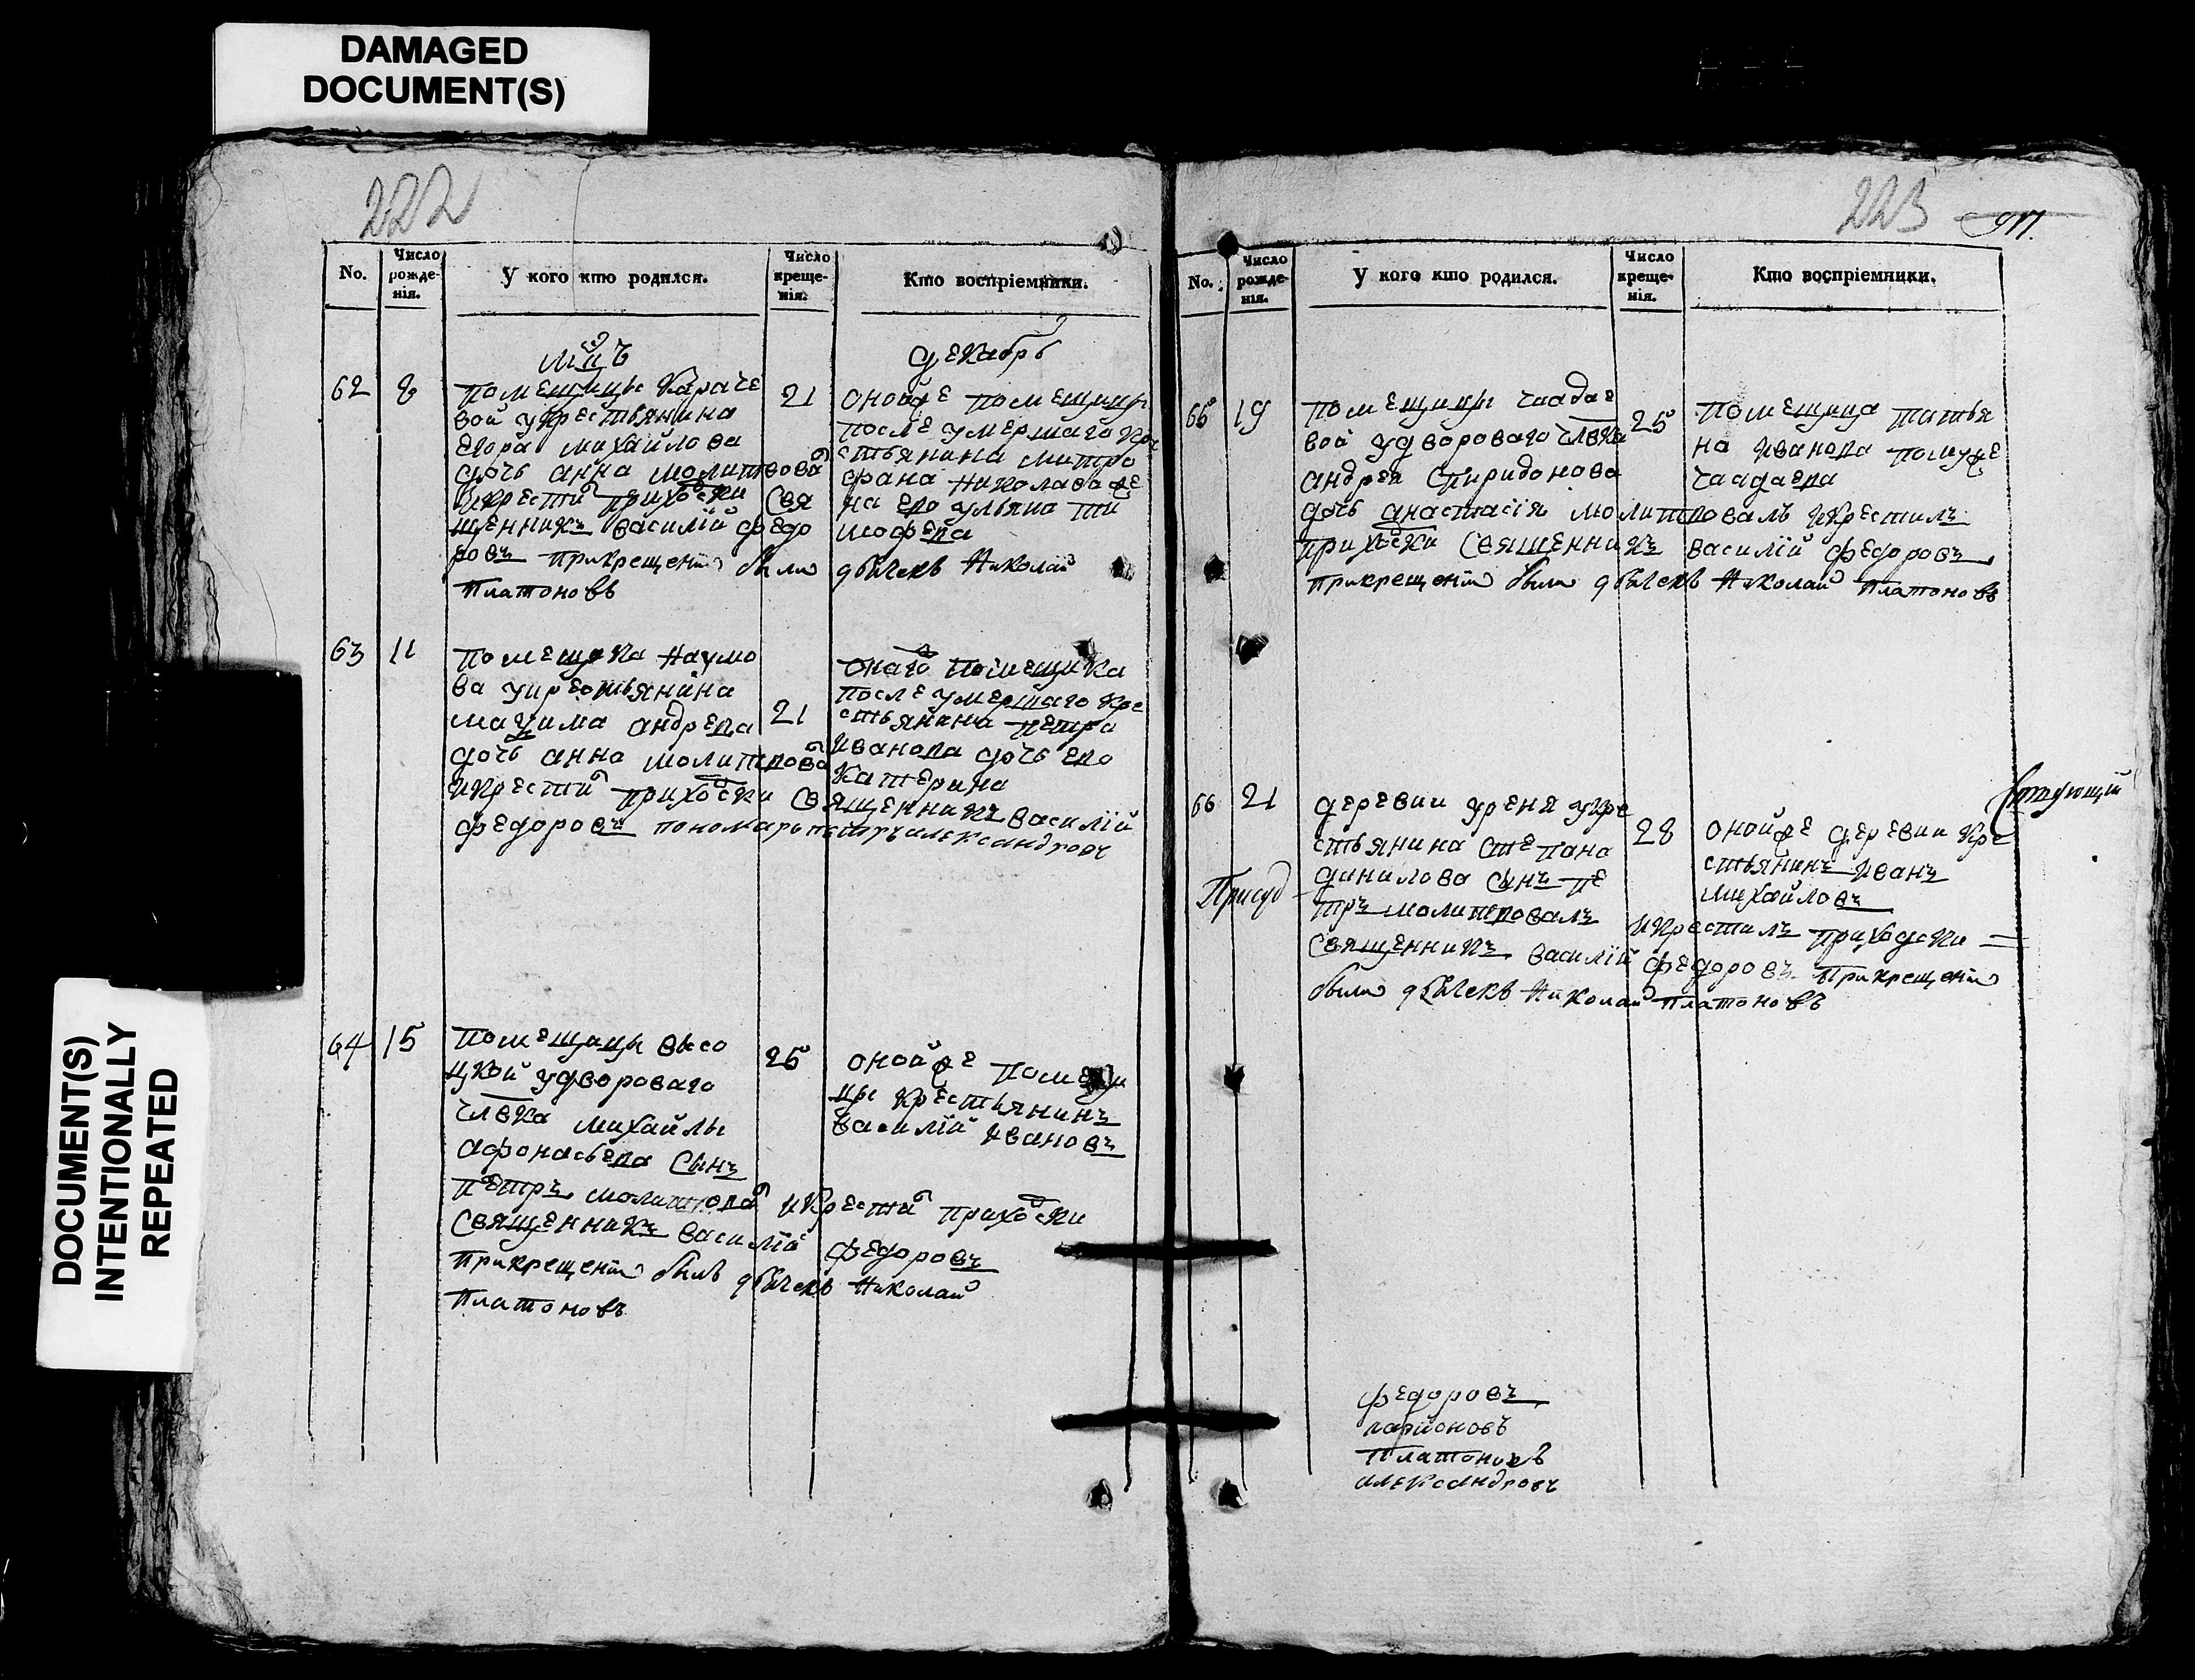 DAMAGED
DOCUMENT(S)
DOCUMENT(S)
INTENTIONALLY
REPEATED
222
No.
Число
рожде-
нія.
У кого кто родился.
Число
креще-
нія.
Кто воспріемники.
декабрь
62 8
помещицы Караче
вой укрестьянина
егора михайлова
дочь анна молитвова
икрести приходски свя
щенникъ василій федо
ровъ прикрещении были дьячекъ Николай
Платоновъ
21
онойже помещицы
после умершаго кре
стьянина митро
фана Николаева же
на ево ульяна ти
мофева
63 11
помещика Наумо
ва укрестьянина
мацима андрева
дочь анна молитвова
икрести приходски священникъ василій
федоровъ пономарь петръ александровъ
21
онаго помещика
после умершаго кре
стьянина петра
Иванова дочь ево
Катерина
64 15
помещицы высо
цкой удвороваго
члвка михайлы
афонасьева сынъ
петръ молитвова икрести приходски
священникъ василій федоровъ
прикрещении былъ дьячекъ Николай
Платоновъ
25
онойже помещи
цы крестьянинъ
василій ивановъ
223
No.
Число
рожде-
нія.
У кого кто родился.
Число
креще-
нія.
Кто воспріемники.
65 19
помещицы чаадае
вой удвороваго члвка
андрея спиридонова
дочь анастасія молитвовалъ икрестилъ
приходски священникъ василій федоровъ
прикрещении были дьячекъ Николай Платоновъ
25
помещица татья
на Иванова
чаадаева
66 21
деревни уреня укре
стьянина степана
данилова сынъ пе
тръ молитвовалъ икрестилъ приходски
священникъ василій федоровъ прикрещении
были дьячекъ Николай Платоновъ
28
онойже деревни кре
стьянинъ иванъ
михайловъ
Присуд
ствующий
федоровъ
ларионовъ
Платоновъ
александровъ